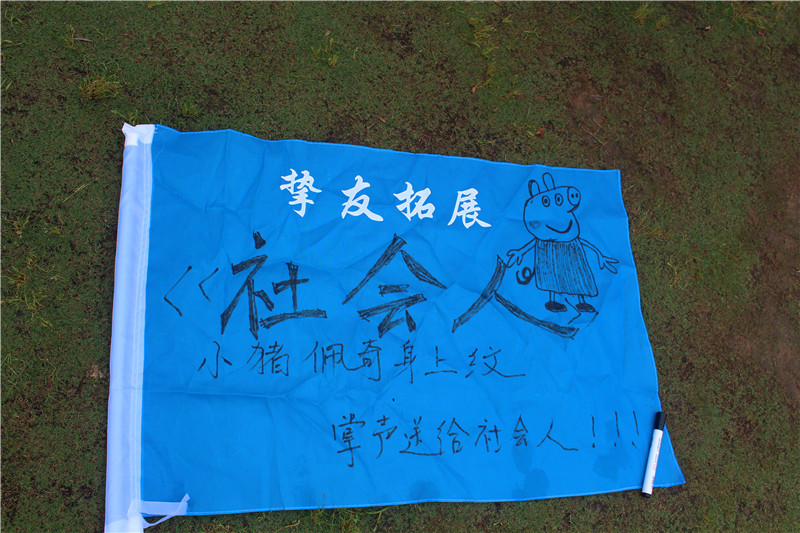 挚友拓展
《社会人
小猪佩奇身上纹
掌声送给社会人!!!